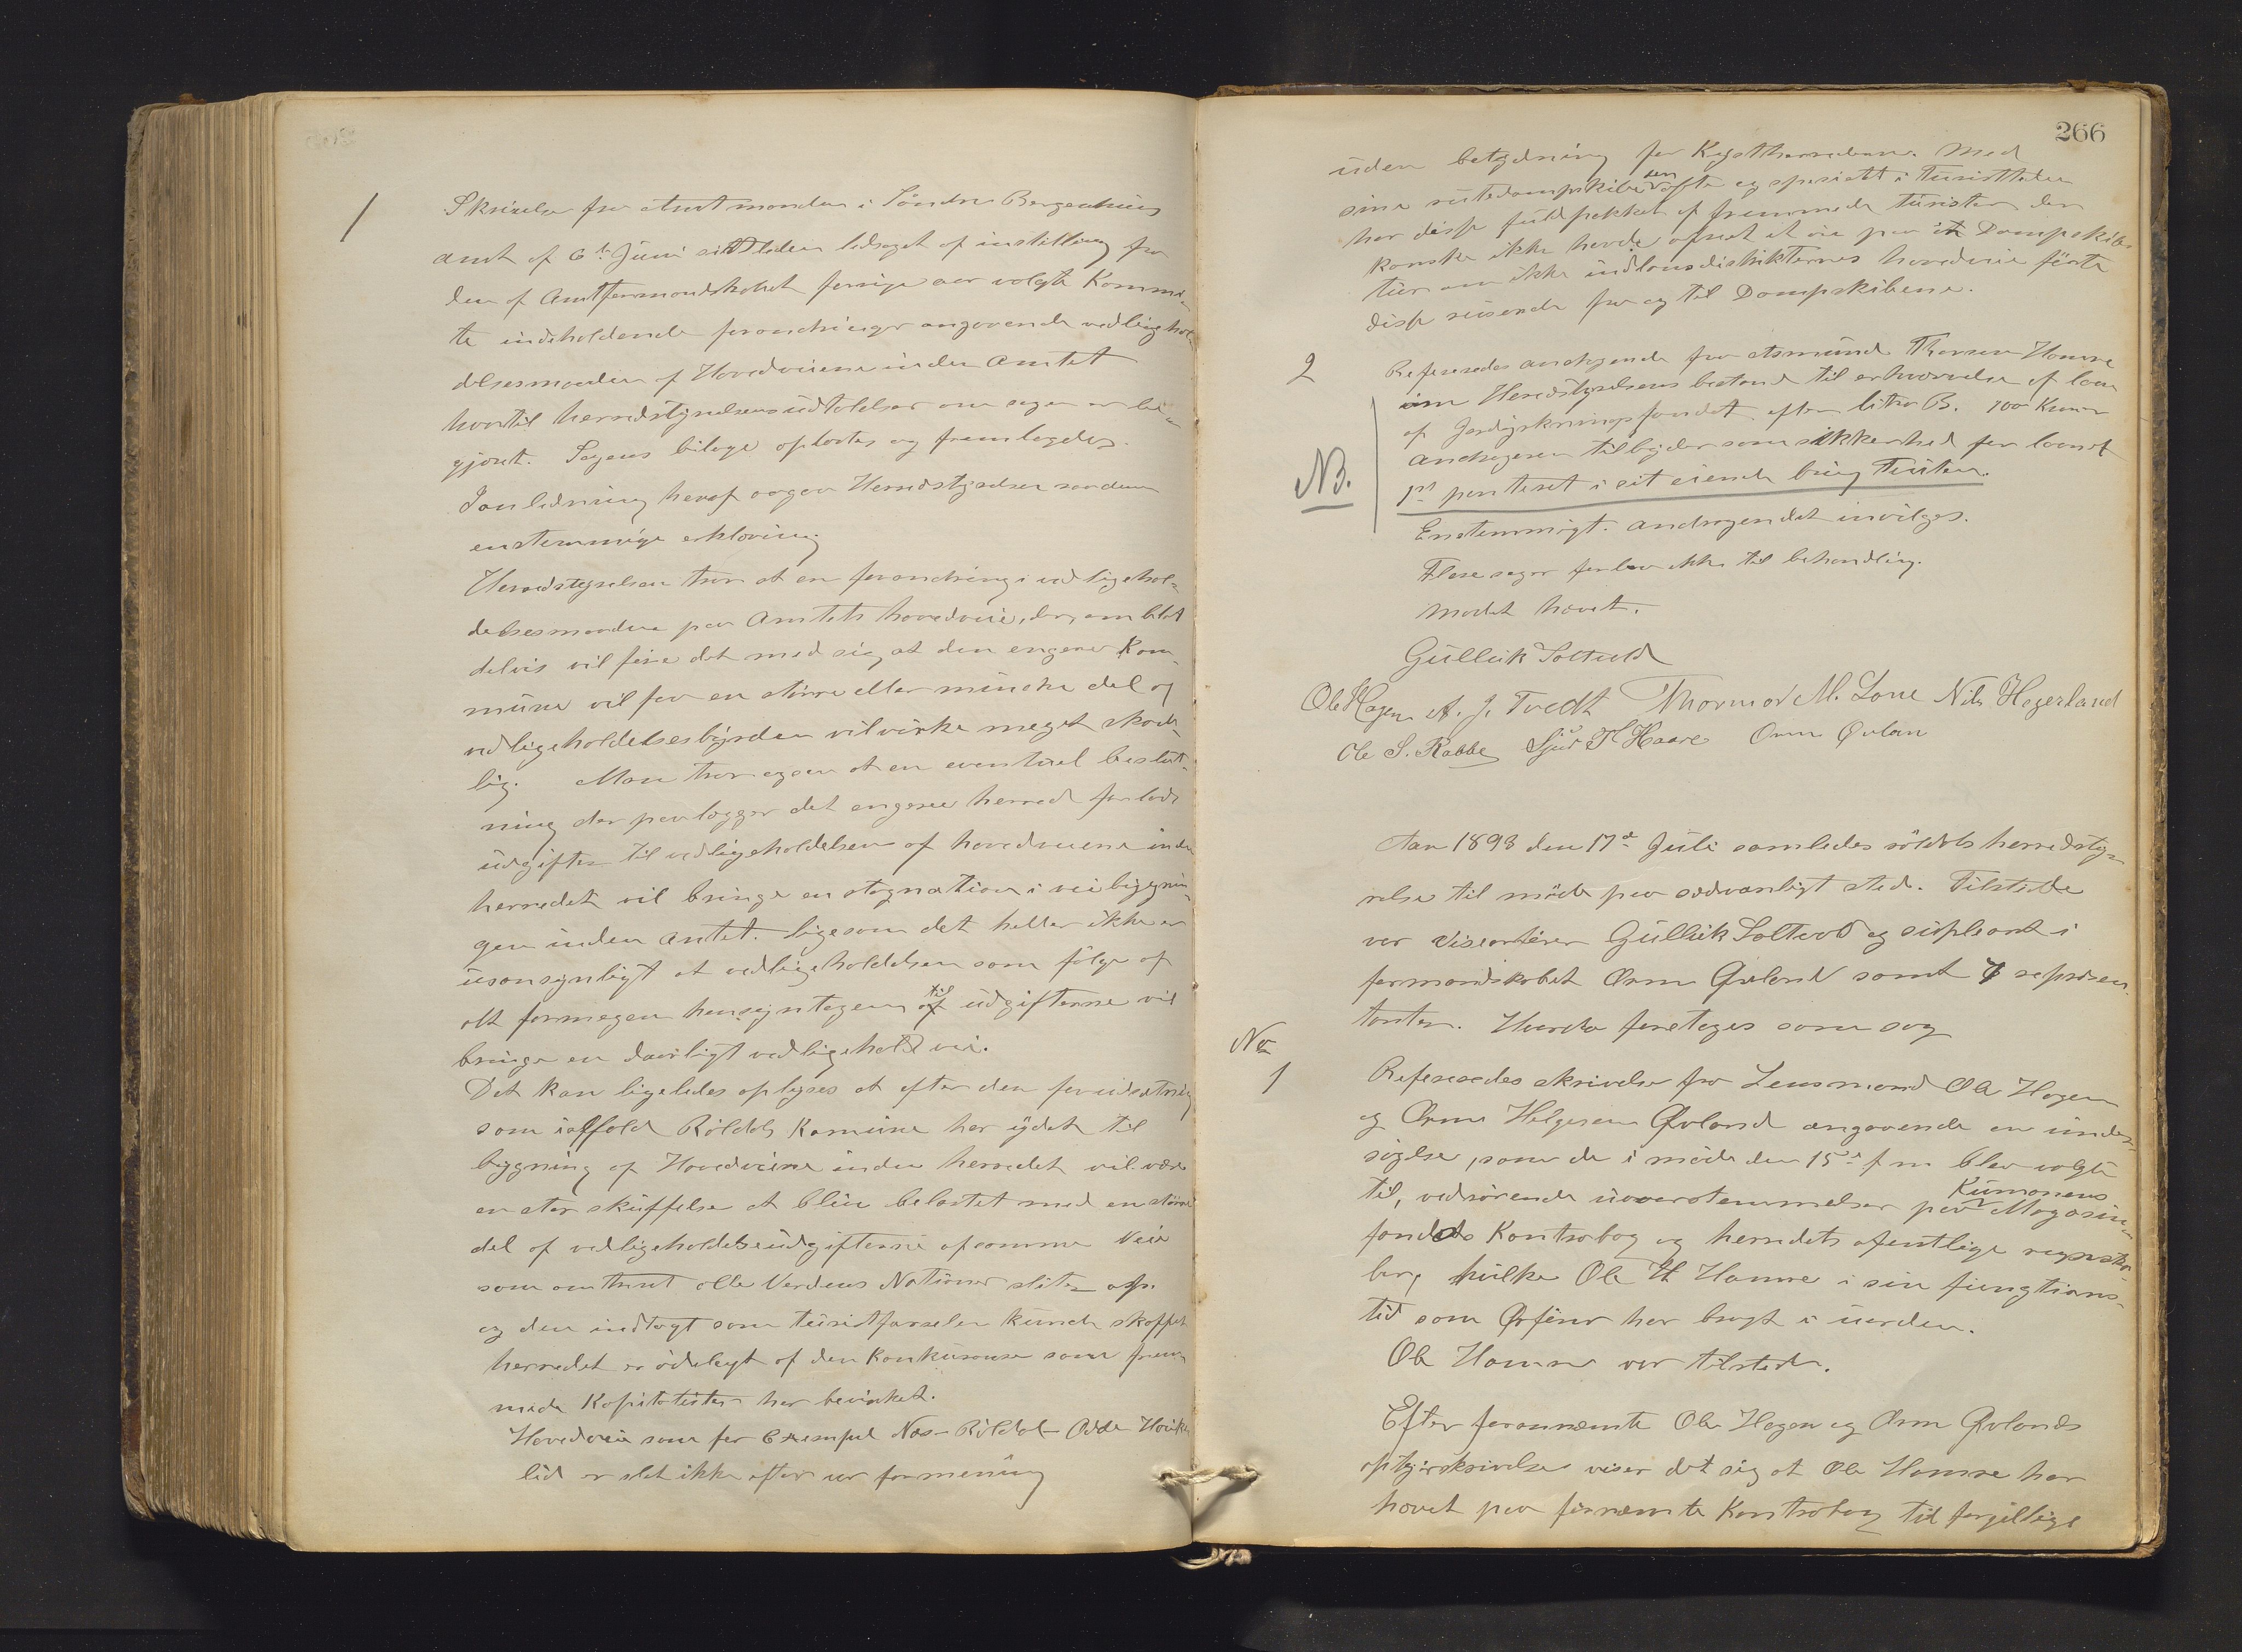 1
Skrivelse fra Amtmanden i Söndre Bergenhuus
amt af 6te Juni sidstleden ledsaget af instilling fra
den af Amtformandskabet forrige aar valgte Kommi-
te indeholdende forandringer angaaende vedligehol-
delsesmaaden af Hovedveiene inden Amtet
hvortil herredstyrelsens udtalelser om sagen er be-
gjæret. Sagens bilage oplæstes og fremlagdes.
I anledning heraf avgav Herredstyrelsen saadan
enstemmige erklæring
Herredstyrelsen tror at en forandring i vedligehol-
delsesmaaden paa Amtets hovedveie, der, om blot
delvis vil före det med sig, at den engere Kom-
mune vil faa en större eller mindre del af
vedligeholdelsesbyrden vil virke meget skade-
lig. Man tror ogsaa at en eventuel beslut-
ning der paalægger det engere herred forlods
udgifter til vedligeholdelsen af hovedveiene inden
herredet vil bringe en stagnation i veibygnin-
gen inden Amtet. Ligesom det heller ikke er
usansynligt at vedligeholdelsen som fölge af
alt formegen hensyntagen til udgifterne vil
bringe en daarligt vedligeholdt vei.
Det kan ligeledes oplyses at efter den forudsætning
som ialfald Röldals Komune har ydet til
bygning af Hovedveiene inden herredet vil være
en stor skuffelse at blive belastet med en större
del af vedligeholdelsesudgifterne af samme Veie
som omtrent alle Verdens Nationer sliter op.
og den indtægt som turistfærselen kunde skaffet
herredet er ödelagt af den Konkurance som frem-
mede Kapitalister har bevirket.
Hovedveie som for Exempel Næs-Röldal-Odde Hauke-
lid er slet ikke efter vor formening
266
uden betydning for Kystherrederne. Med
sine rutedampskibe sen ofte og specielt i Turisttiden
har disse fuldpakket af fremmede turister der
kanske ikke havde ofret et öre paa en Dampskibs
tur om ikke indlandsdistrikternes hovedveie förte
disse reisende fra og til Dampskibene.
2
Refereredes andragende fra Asmund Thorsen Hamre
om Herredstyrelsens bistand til erhvervelse af laan
af Jorddyrkningsfondet efter litra B. 700 Kroner
Andrageren tilbyder som sikkerhed for laanet
1st panteret i sit eiende brug Tuften.
NB.
Enstemmigt. Andragendet invilges.
Flere sager forlaa ikke til behandling.
Mødet hævet.
Gullik Soltvedt
Ole Hagen A. J. Tvedt Thormod M. Lone Nils Hegerland
Ole S. Rabbe Sjur T. Haare Orm Øvlan
Aar 1893 den 17de Juli samledes röldals herredsty-
relse til möde paa sædvanligt sted. Tilstede
var viseordförer Gullik Soltvedt og supleant i
formandskabet Orm Øvland samt 7 repræsen-
tanter. Hvorda foretoges som sag
No
1
Refereredes skrivelse fra Lensmand Ole Hagen
og Orm Helgesen Øvland angaaende en under-
sögelse, som de i möde den 15de f m blev valgte
til, vedrörende uoverstemmelser paa Kumonens Magasin-
fondets Kontrabog og herredets ofentlige regnska-
ber, hvilke Ole H Hamre i sin fungtions-
tid som Orförer har bragt i uorden.
Ole Hamre var tilstede.
Efter forannæmte Ole Hagen og Orm Øvlands
opgjörskrivelse viser det sig at Ole Hamre har
hævet paa førnæmte Kontrabog til forjellige